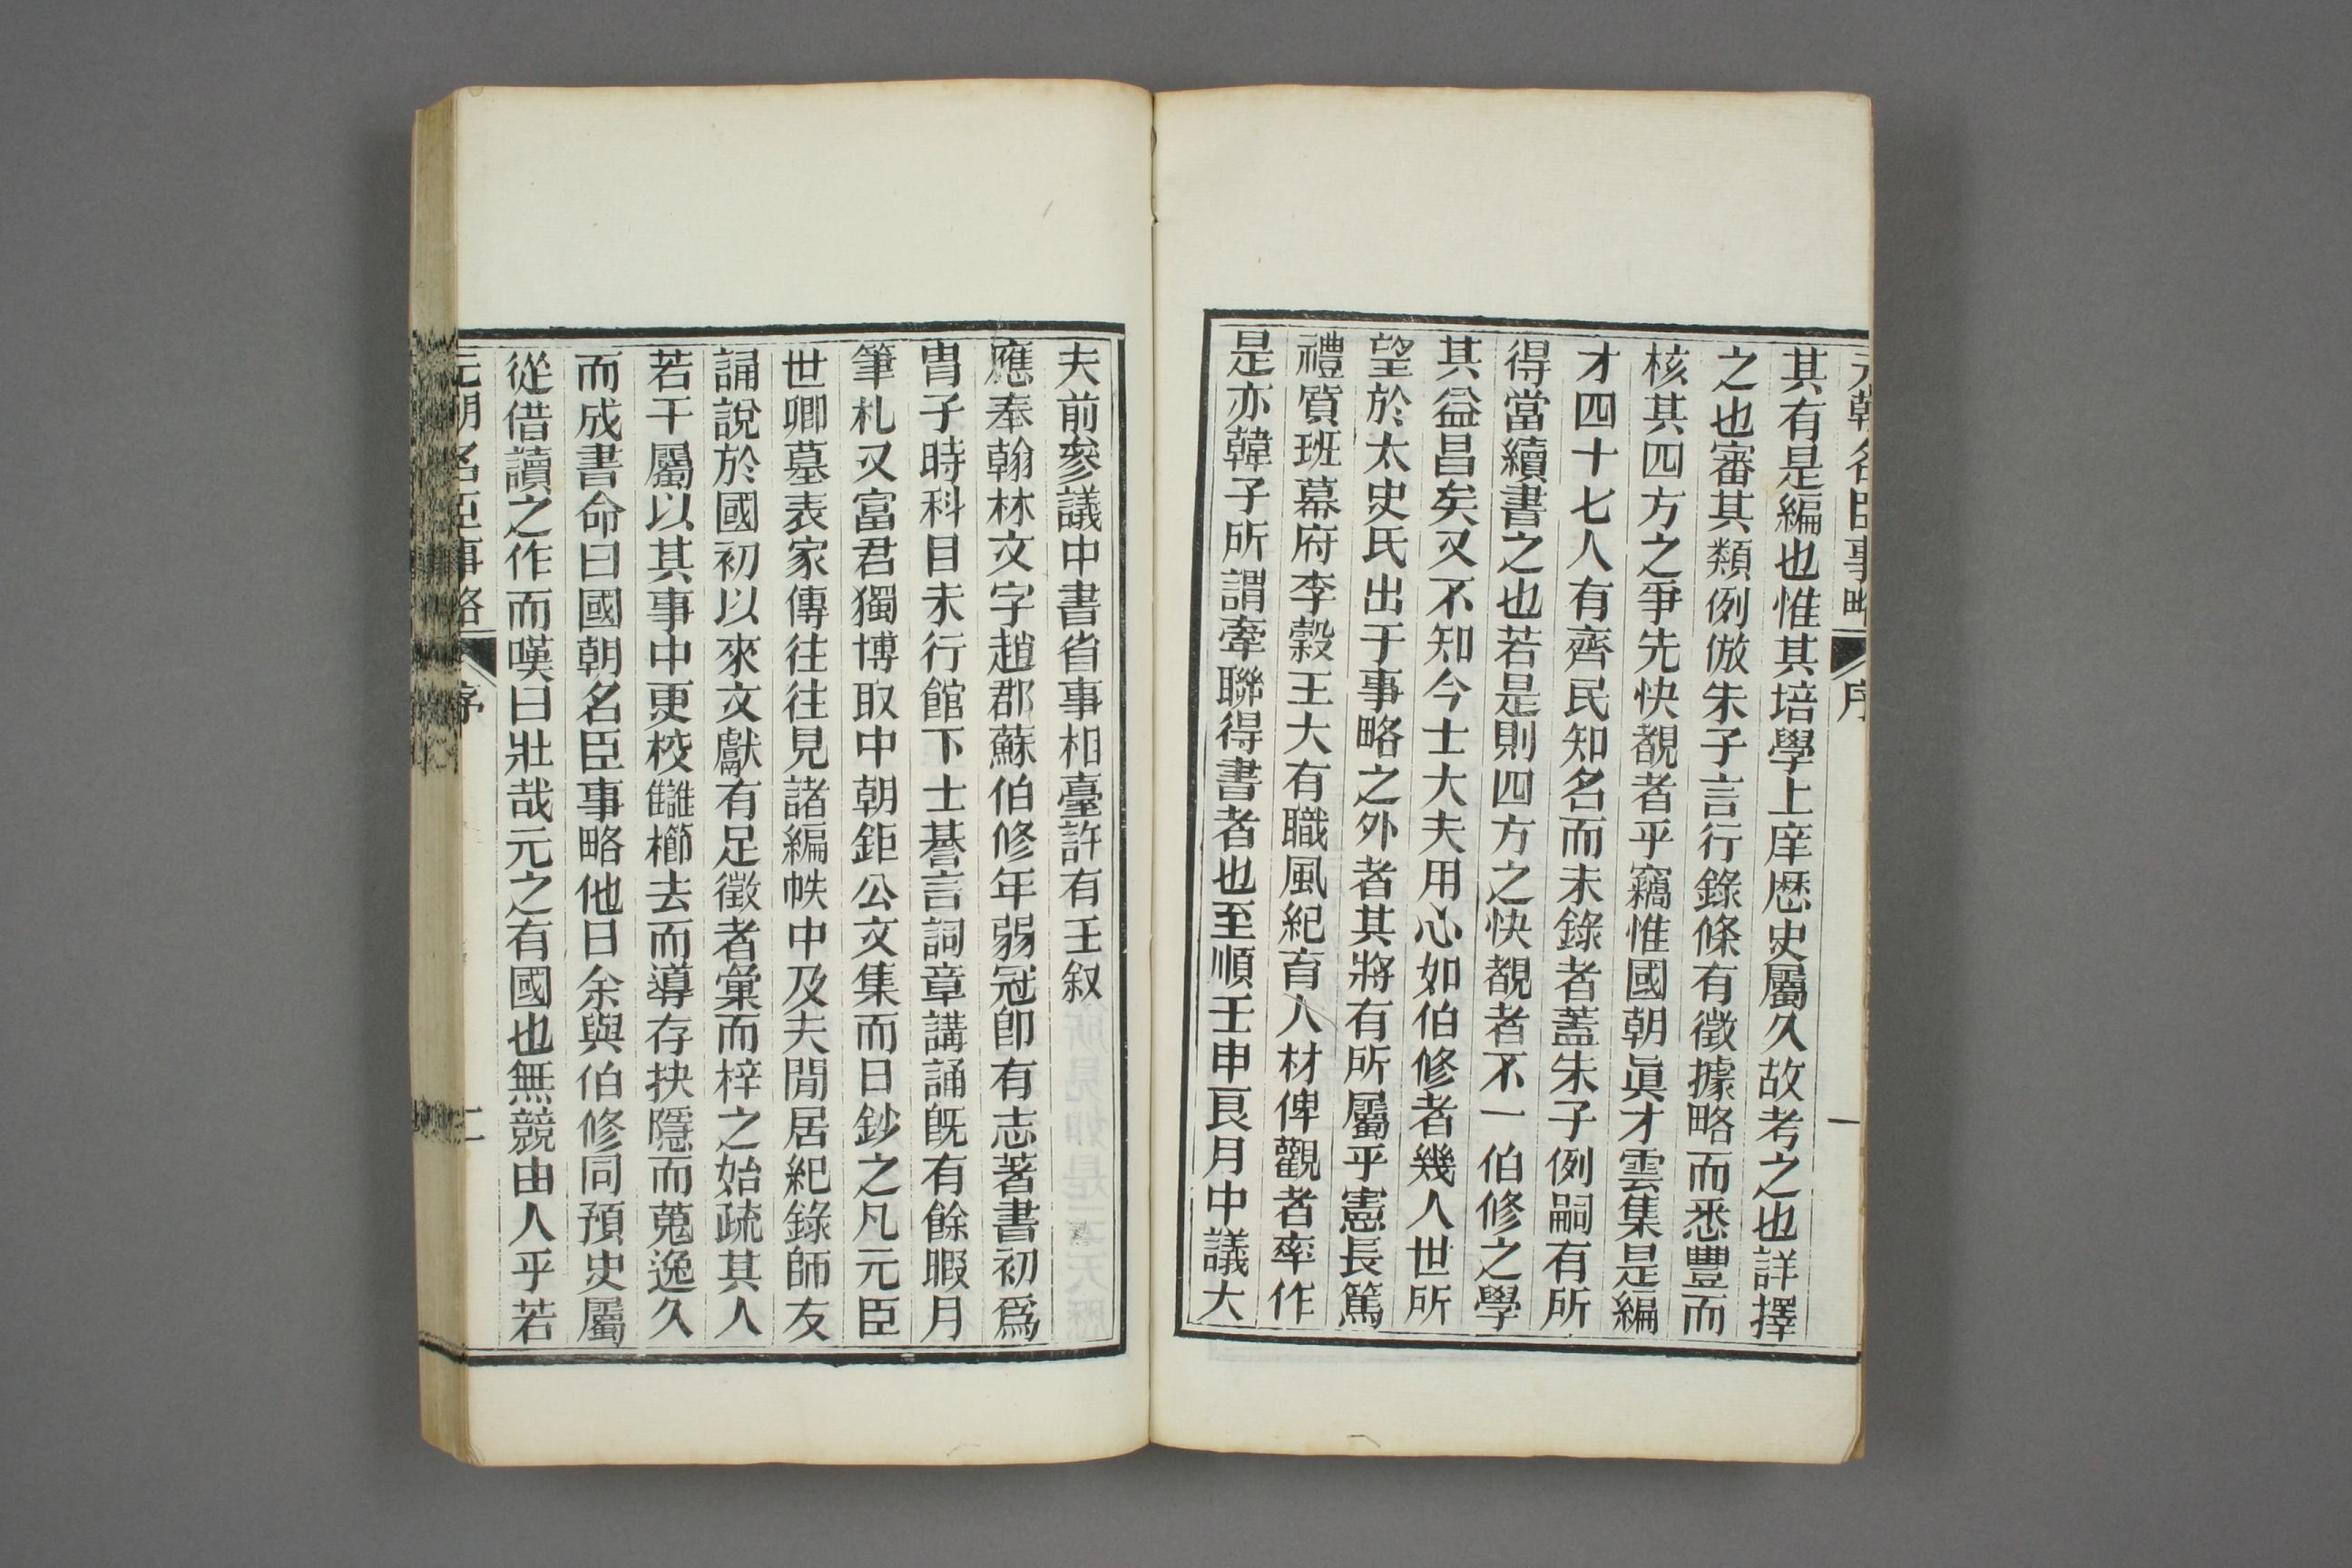 元朝名臣事略 序 一
其有是編也惟其培學上庠歷史屬久故考之也詳擇
之也審其類例倣朱子言行錄條有徵據略而悉豐而
核其四方之爭先快覩者乎竊惟國朝眞才雲集是編
才四十七人有齊民知名而未錄者蓋朱子例嗣有所
得當續書之也若是則四方之快覩者不一伯修之學
其益昌矣又不知今士大夫用心如伯修者幾人世所
望於太史氏出于事略之外者其將有所屬乎憲長篤
禮質班幕府李穀王大有職風紀育人材俾觀者率作
是亦韓子所謂牽聯得書者也至順壬申艮月中議大
夫前參議中書省事相臺許有壬叙
應奉翰林文字趙郡蘇伯修年弱冠卽有志著書初爲
胄子時科目未行館下士諅言詞章講誦旣有餘暇月
筆札又富君獨博取中朝鉅公文集而日鈔之凡元臣
世卿墓表家傳往往見諸編帙中及夫閒居紀錄師友
誦說於國初以來文獻有足徵者彙而梓之始疏其人
若干屬以其事中更校讎櫛去而導存抉隱而蒐逸久
而成書命曰國朝名臣事略他日余與伯修同預史屬
從借讀之作而嘆曰壯哉元之有國也無競由人乎若
元朝名臣事略 序 二